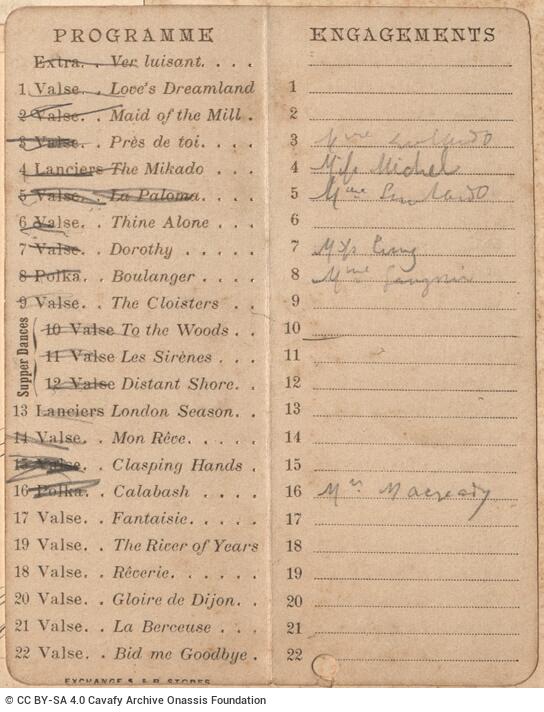 PROGRAMME
Extra. . Ver luisant. . . .
1 Valse. . Love's Dreamland
2 Valse. . Maid of the Mill .
3 Valse. . Près de toi. . . .
4 Lanciers The Mikado . . .
5 Valse. . La Paloma. . . .
6 Valse. . Thine Alone . . .
7 Valse. . Dorothy . . . . .
8 Polka. . Boulanger . . . .
9 Valse. . The Cloisters . . .
Supper Dances
10 Valse To the Woods . .
11 Valse Les Sirènes . . .
12 Valse Distant Shore. . .
13 Lanciers London Season. .
14 Valse. . Mon Rêve. . . . .
15 Valse. . Clasping Hands .
16 Polka. . Calabash . . . .
17 Valse. . Fantaisie. . . . .
19 Valse. . The River of Years
18 Valse. . Rêverie. . . . . .
20 Valse. . Gloire de Dijon. . .
21 Valse. . La Berceuse . . .
22 Valse. . Bid me Goodbye .
ENGAGEMENTS
1
2
3 Mme
4 Miss Michel
5 Mme
6
7 Miss
8 Mme
9
10
11
12
13
14
15
16 Mrs Macready
17
18
19
20
21
22
© CC BY-SA 4.0 Cavafy Archive Onassis Foundation